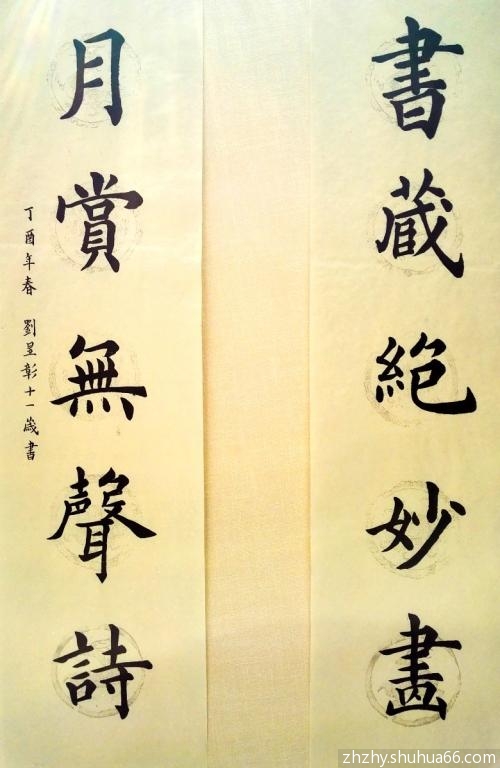 書蔵絶妙畫
月賞無聲詩
丁酉年春 劉呈彰十一歲書
zhzhy.shuhua66.com